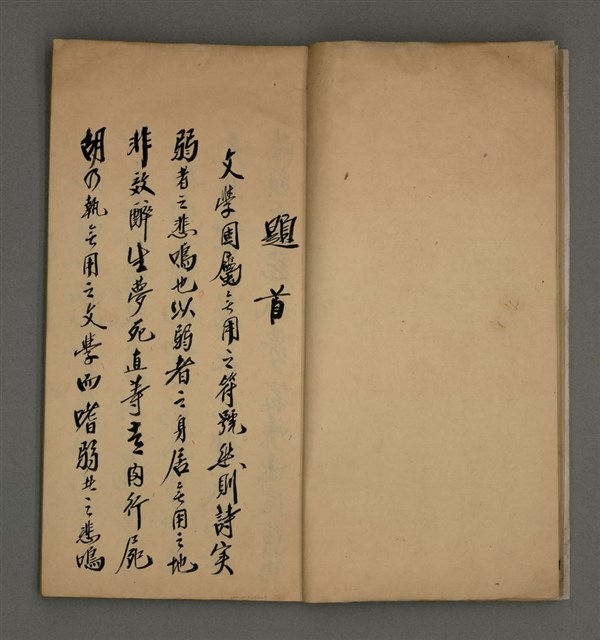 題首
文學固屬無用之符號然則詩实
弱者之悲鳴也以弱者之身居無用之地
非效醉生夢死直等走肉行屍
胡乃執無用之文學而嗜弱者之悲鳴